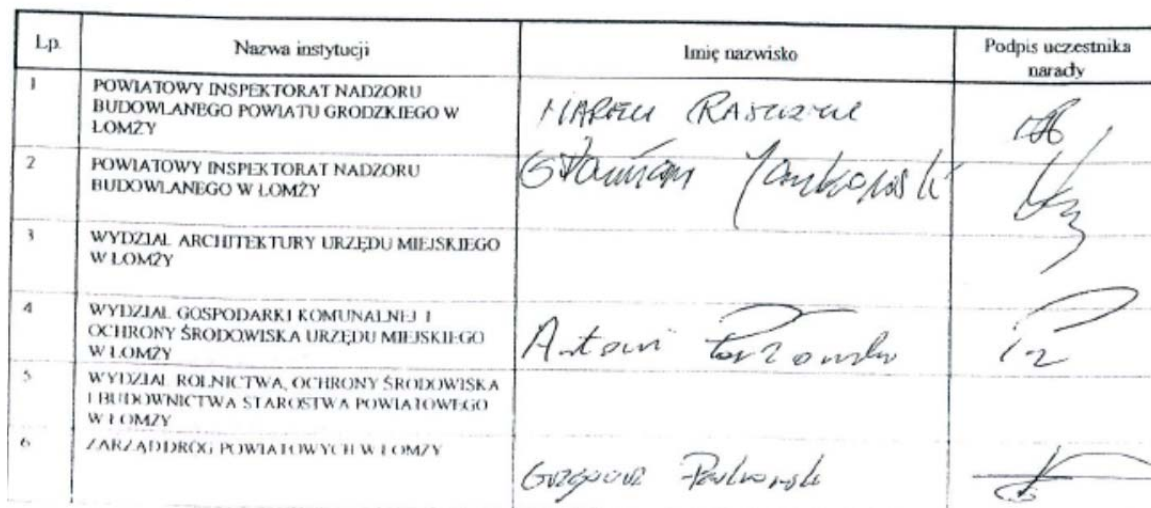 Lp. Nazwa instytucji Imię nazwisko Podpis uczestnika
narady
1 POWIATOWY INSPEKTORAT NADZORU
BUDOWLANEGO POWIATU GRODZKIEGO W
ŁOMŻY
MAREK
2 POWIATOWY INSPEKTORAT NADZORU
BUDOWLANEGO W ŁOMŻY
Jankowski
3 WYDZIAŁ ARCHITEKTURY URZĘDU MIEJSKIEGO
W ŁOMŻY
4 WYDZIAŁ GOSPODARKI KOMUNALNEJ I
OCHRONY ŚRODOWISKA URZĘDU MIEJSKIEGO
W ŁOMŻY
Antoni
5 WYDZIAŁ ROLNICTWA, OCHRONY ŚRODOWISKA
I BUDOWNICTWA STAROSTWA POWIATOWEGO
W ŁOMŻY
6 ZARZĄD DRÓG POWIATOWYCH W ŁOMŻY
Grzegorz